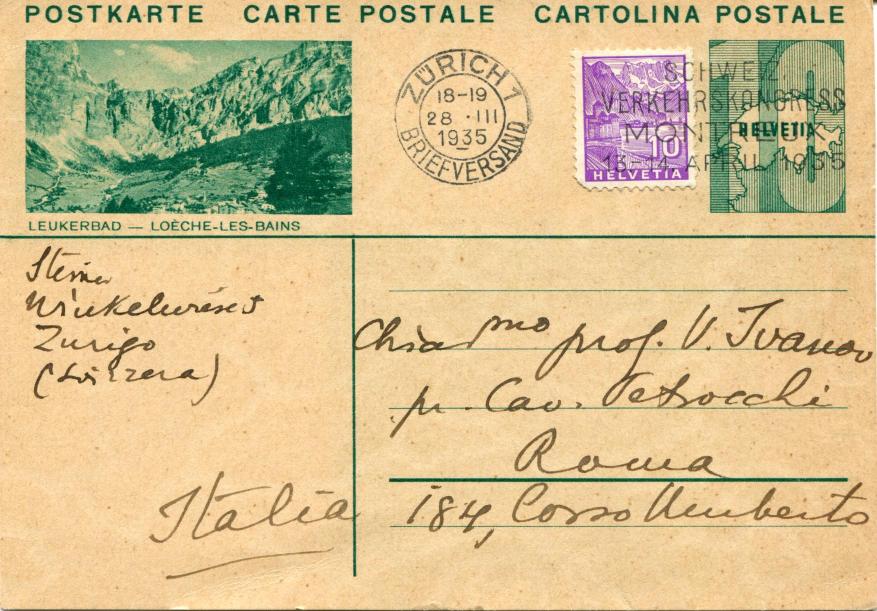 POSTKARTE CARTE POSTALE CARTOLINA POSTALE
ZÜRICH 1
18-19
28 · III
1935
BRIEFVERSAND
SCHWEIZ.
VERKEHRSKONGRESS
MONTREUX
13-14 APRIL 1935
10
HELVETIA
HELVETIA
LEUKERBAD — LOÈCHE-LES-BAINS
Steiner
Zurigo
(Svizzera)
Chiarmo prof. V. Ivanov
pr. Cav. Petrocchi
Roma
184, Corso Umberto
Italia